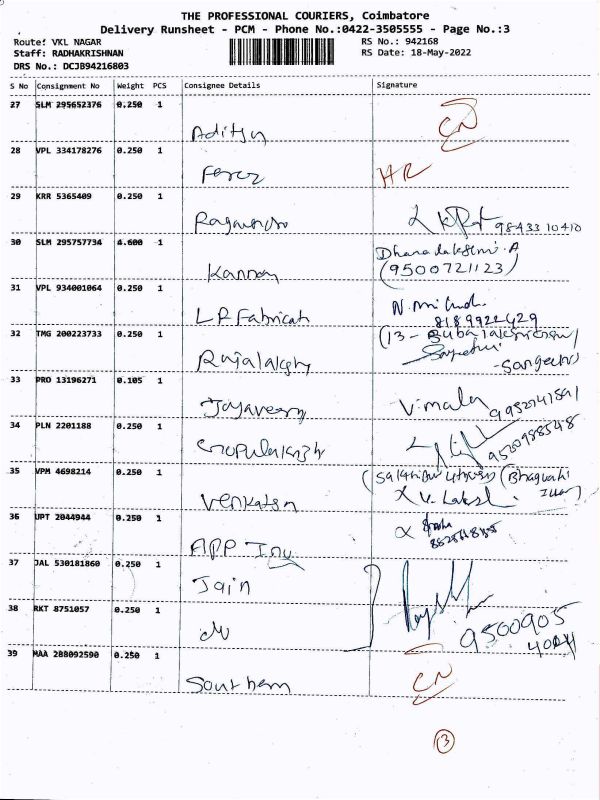 THE PROFESSIONAL COURIERS, Coimbatore
Delivery Runsheet - PCM - Phone No.:0422-3505555 - Page No.:3
Route: VKL NAGAR RS No.: 942168
Staff: RADHAKRISHNAN RS Date: 18-May-2022
DRS No.: DCJB94216803
S No Consignment No Weight PCS Consignee Details Signature
27 SLM 295652376 0.250 1 CN
Aditya
28 VPL 334178276 0.250 1 HR
Feroz
29 KRR 5365409 0.250 1
98433 10410
30 SLM 295757734 4.600 1 Dhanadakshmi.A
Kannan (9500721123)
31 VPL 934001064 0.250 1
LP Fabricat 8189922429
32 TMG 200223733 0.250 1 (13 -
Rajalaksh -Sangeetha
33 PRO 13196271 0.105 1
Jayaveera V.mala
34 PLN 2201188 0.250 1
9520988548
35 VPM 4698214 0.250 1
Venkatsn
36 UPT 2044944 0.250 1
APP Inv
37 JAL 530181860 0.250 1
Jain
38 RKT 8751057 0.250 1
do 9500905
404
39 MAA 288092590 0.250 1 CN
Southern
13